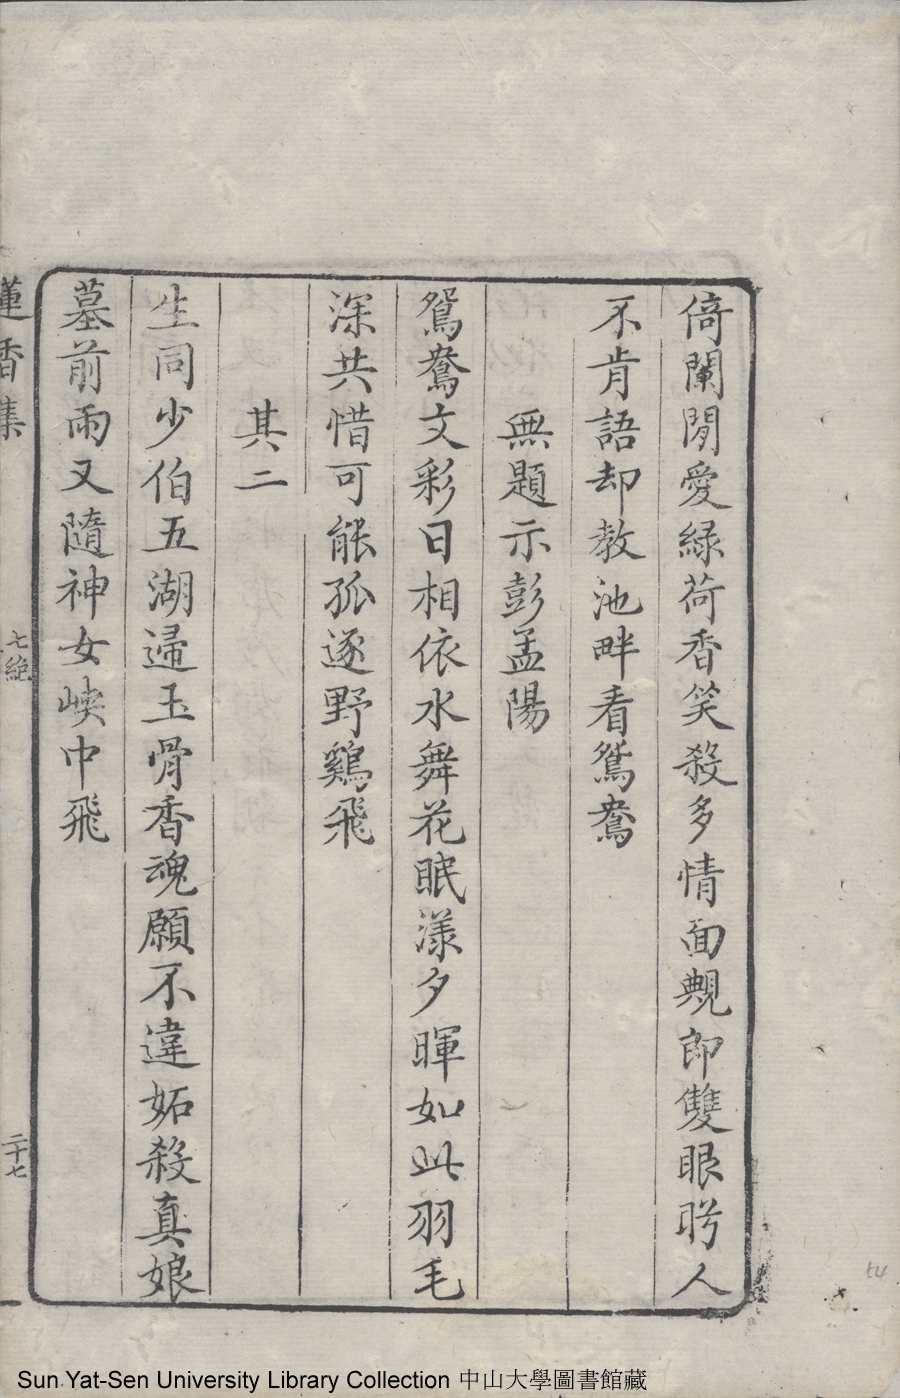 倚闌閒愛綠荷香笑殺多情面靦即雙眼盻人
不肯語却教池畔看鴛鴦
無題示彭孟陽
鴛鴦文彩日相依水舞花眠漾夕暉如此羽毛
深共惜可能孤逐野鷄飛
其二
生同少伯五湖歸玉骨香魂願不違妬殺真娘
墓前雨又隨神女峽中飛
蓮香集
七絶
二十七
Sun Yat-Sen University Library Collection 中山大學圖書館藏